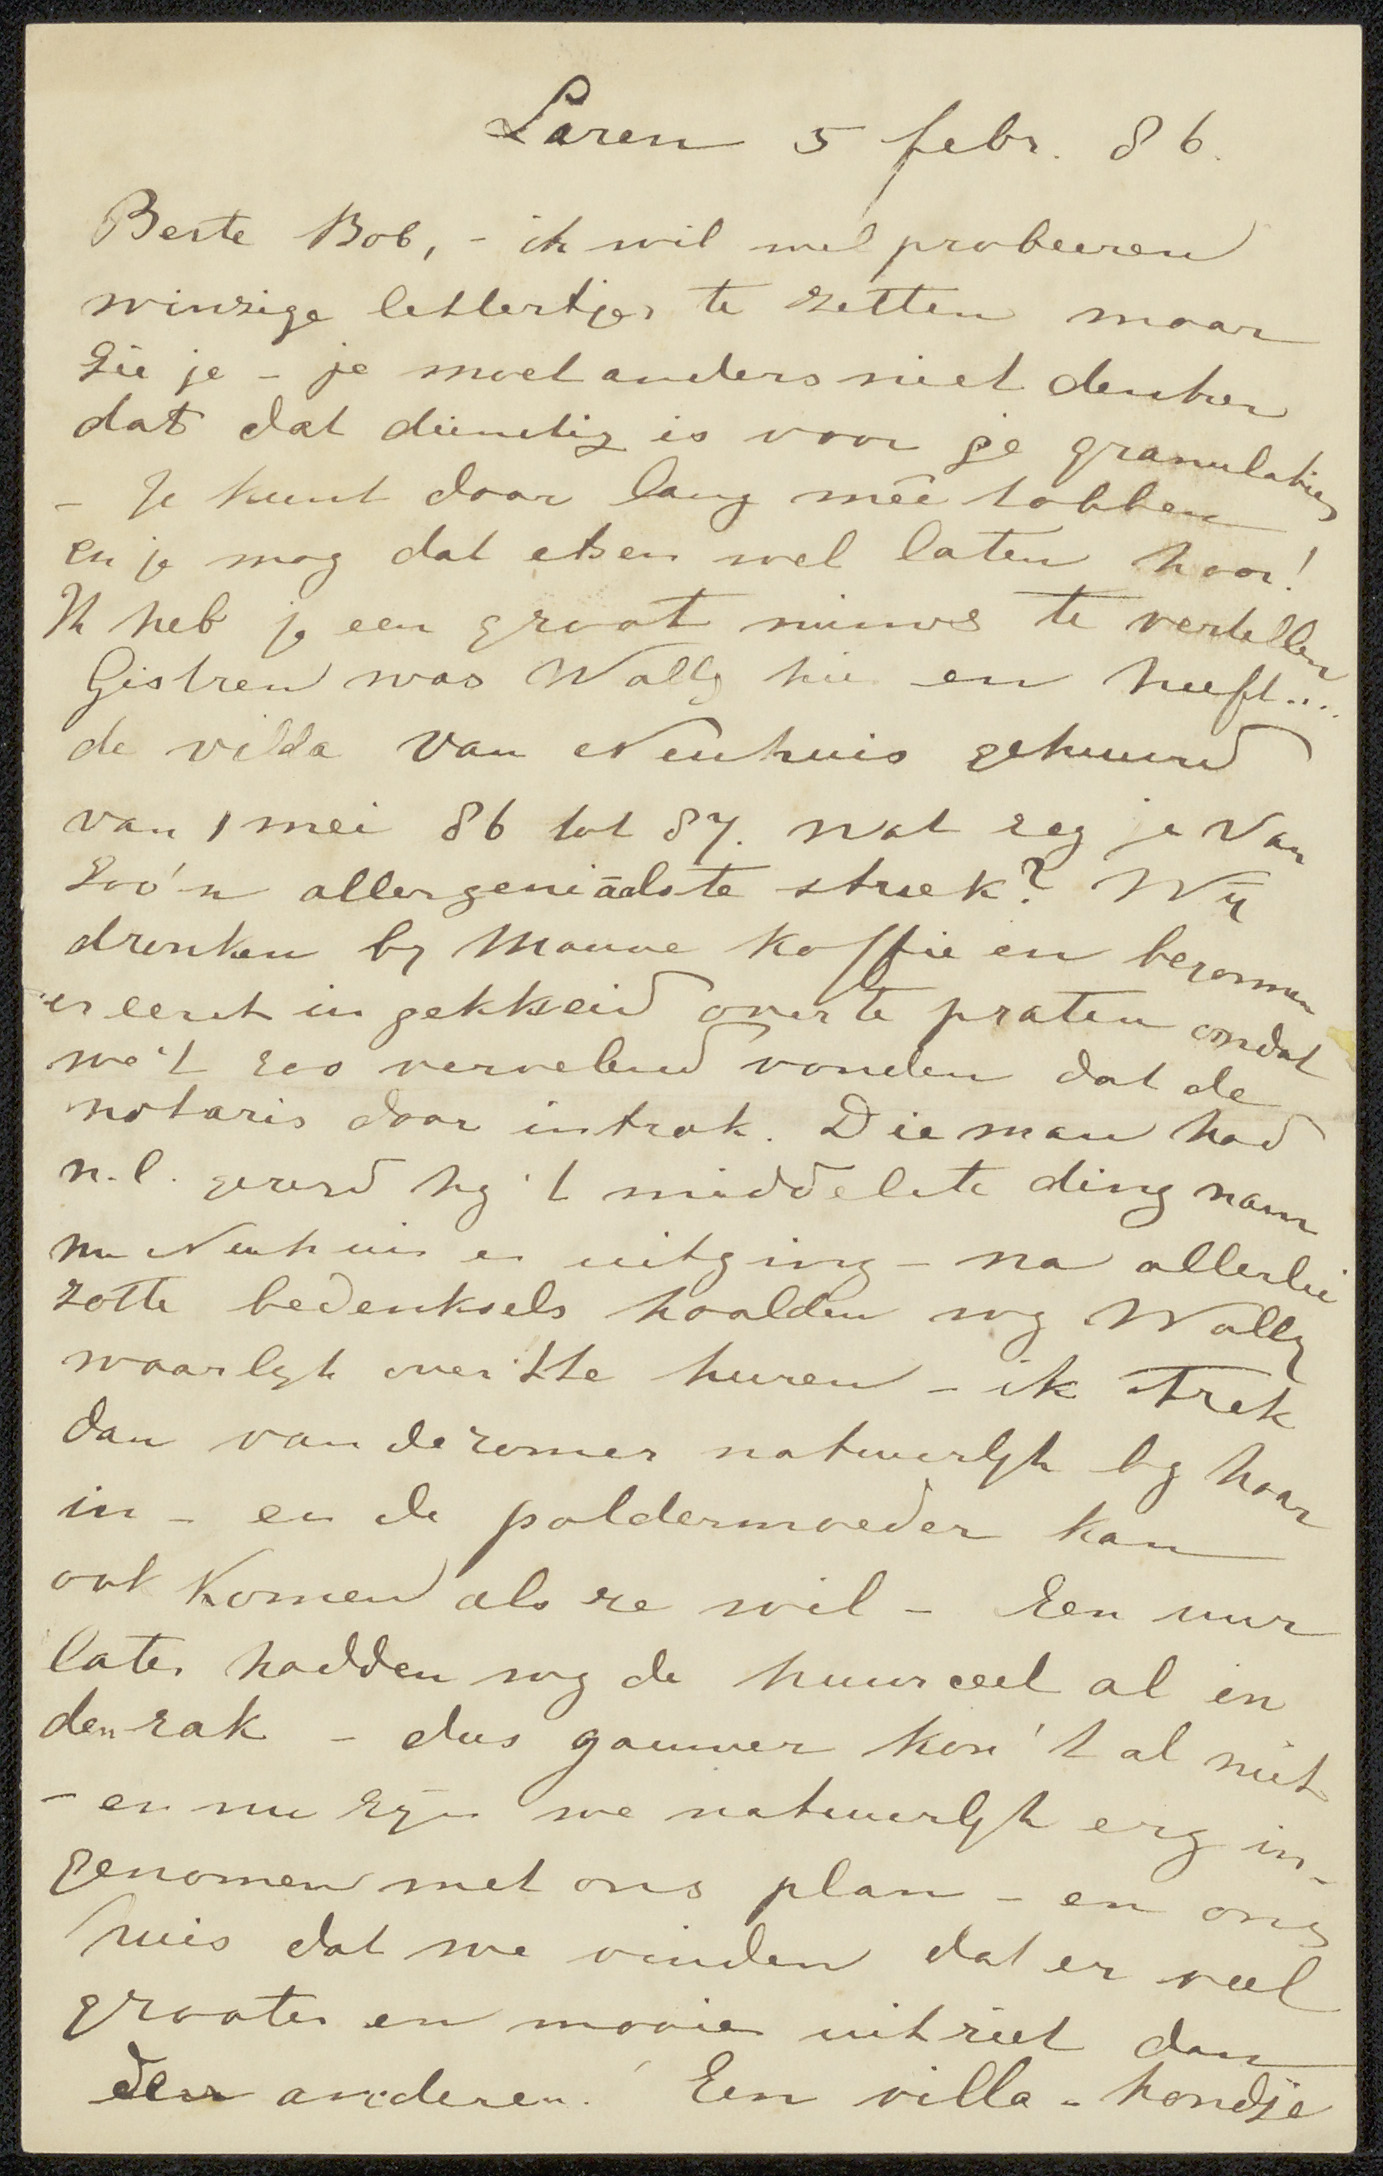 Laren 5 febr. 86.
Beste Bob, - ik wil wel probeeren
winzige lettertjes te zetten maar
zie je - je moet anders niet denken
dat dat dienstig is voor je granulaties
- Je kunt daar lang meê tobben
en je mag dat etsen wel laten hoor!
Ik heb je een groot nieuws te vertellen
Gistren was Wally hier en heeft....
de villa van Nenhuis gehuurd
van 1 mei 86 tot 87. wat zeg je van
zoo'n allergeniaalste streek? Wij
dronken by Mauve koffie en begonnen
er eerst in gekkheid over te praten omdat
we 't zoo vervelend vonden dat de
notaris daar introk. Die man had
n.l. gezegd hy 't middelste ding nam
nu Nenhuis er uitging - na allerlei
zotte bedenksels haalden wy Wally
waarlyk over 't te huren - ik trek
dan van de zomer natuurlyk by haar
in - en de poldermoeder kan
ook komen als ze wil - Een uur
later hadden wy de huurceel al in
den zak - dus gauwer kon 't al niet
- en nu zyn we natuurlyk erg in-
genomen met ons plan - en ons
huis dat we vinden dat er veel
grooter en mooier uitziet dan
den anderen. Een villa-hondje